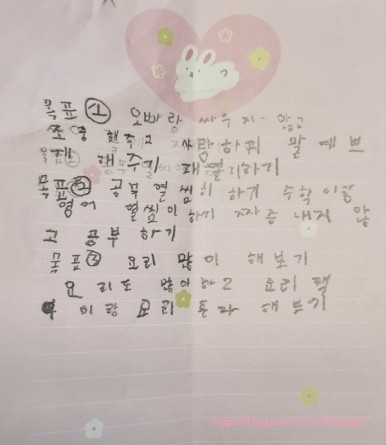 목표① 오빠랑 싸우지 않고
존중 해주고 사랑하귀 말 예쁘
게 해주기 배열리하기
목표② 공부 열씸히 하기 수학이랑
영어 열씸이 하기 짜증 내지 않
고 공부 하기
목표③ 요리 많이 해보기
요리도 많이 하고 요리 책
이랑 요리 혼자 해보기